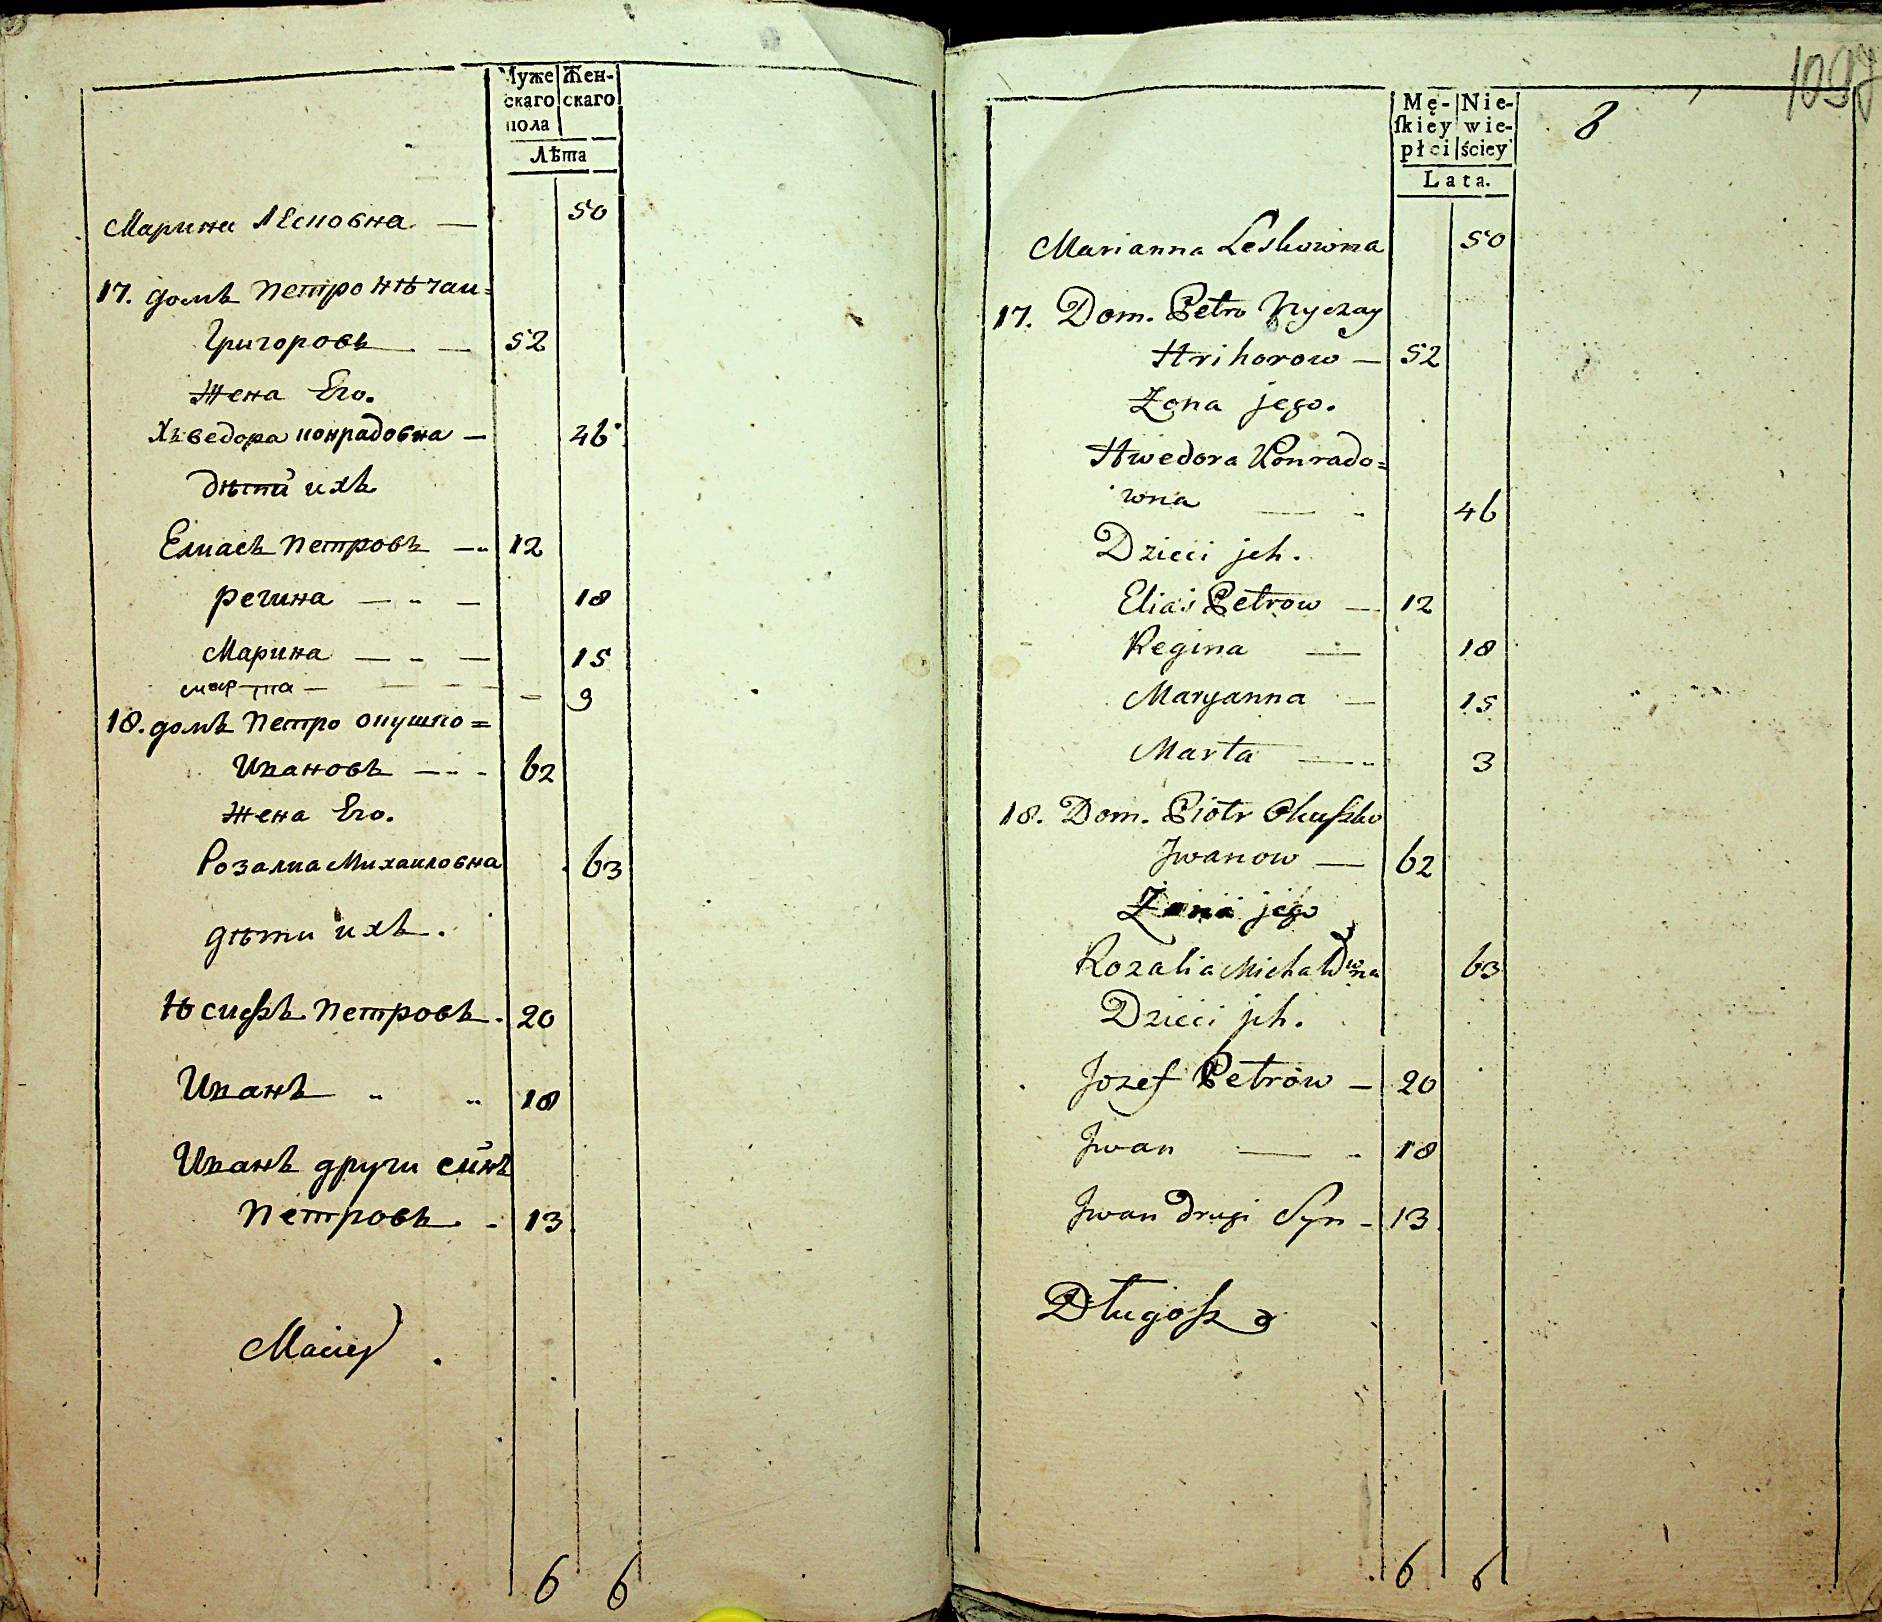 Муже Жен-
скаго скаго
пола
Лѣта
Марина Лесковна — 50
17. домъ Петро Нѣчаи=
Григоровъ — 52
Жена Его.
Хведора конрадовна — 46
дѣти ихъ
Елиасъ Петровъ — 12
регина — - — 18
Марина — - — 15
марта — 9
18. домъ Петро окушко=
Ивановъ — - - 62
Жена Его.
Розалиа Михаиловна 63
дѣти ихъ.
Иосифъ Петровъ. 20
Иванъ 18
Иванъ други синъ
Петровъ. - 13
Maciey
6 6
1097
8
Mę- Nie-
ſkiey wie-
płci ściey
Lata.
Marianna Leskowna 50
17. Dom. Petro Nyczay
Hrihorow — 52
Zona jego.
Hwedora Konrado=
wna — - 46
Dzieci jch.
Elias Petrow — 12
Regina — 18
Maryanna — 15
Marta — 3
18. Dom. Piotr Okuſzko
Jwanow — 62
Zona jego
Rozalia Michałowna 63
Dzieci jch.
Jozef Petrow — 20
Jwan — - 18
Jwan drugi Syn - 13
Długoſz
6 6